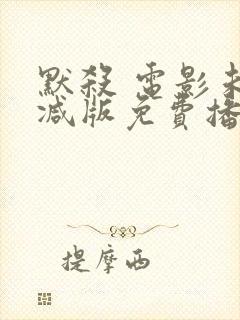 默殺 電影未
減版免費播
提摩西